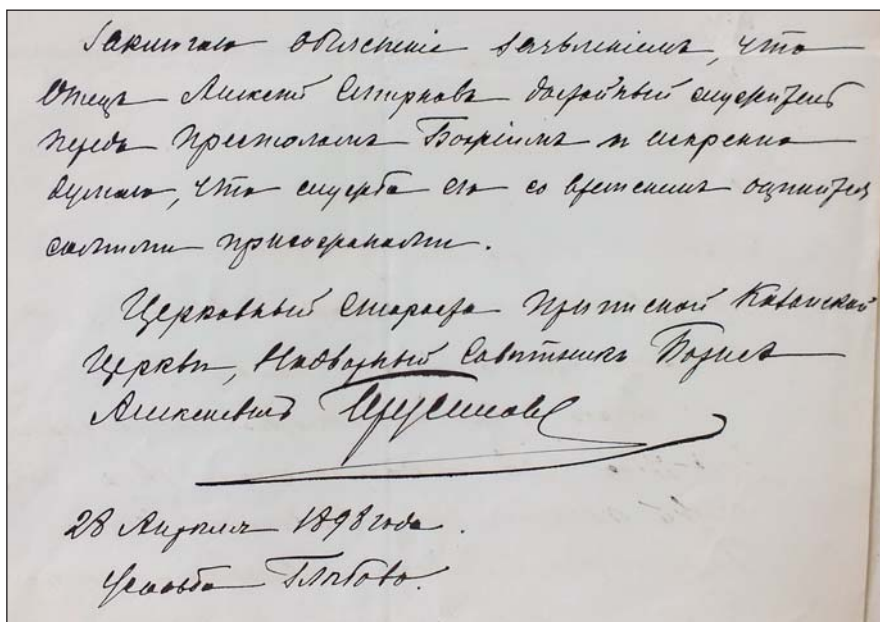 Заключаю объясненіе заявленіемъ, что
Отецъ Алексѣй Смирновъ достойный служитель
передъ Престоломъ Божіимъ и искренно
думаю, что служба его со временемъ оцѣнится
самими прихожанами.
Церковный Староста приписной Казанской
Церкви, Надворный Совѣтникъ Борисъ
Алексеевичъ
28 Апрѣля 1898 года.
Усадьба Глѣбово.